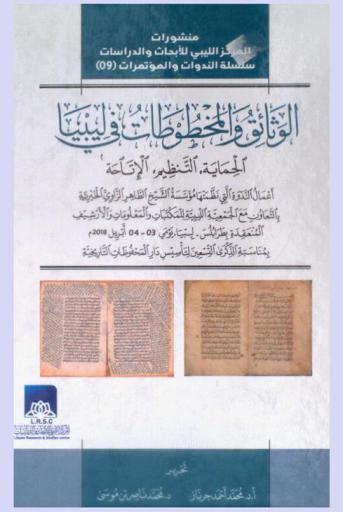 منشورات
المركز الليبي للأبحاث والدراسات
سلسلة الندوات والمؤتمرات (09)
الوثائق والمخطوطات في ليبيا
الحماية، التنظيم، الإتاحة
أعمال الندوة التي نظمتها مؤسسة الشيخ الطاهر الزاوي الخيرية
بالتعاون مع الجمعية الليبية للمكتبات والمعلومات والأرشيف
المنعقدة بطرابلس - ليبيا يومي 03 - 04 أبريل 2018م
بمناسبة الذكرى التسعين لتأسيس دار المحفوظات التاريخية
L.R.S.C
Libyan Research & Studies centre
تحرير
أ.د. محمد أحمد جرناز
د. محمد ناصر بن موسى